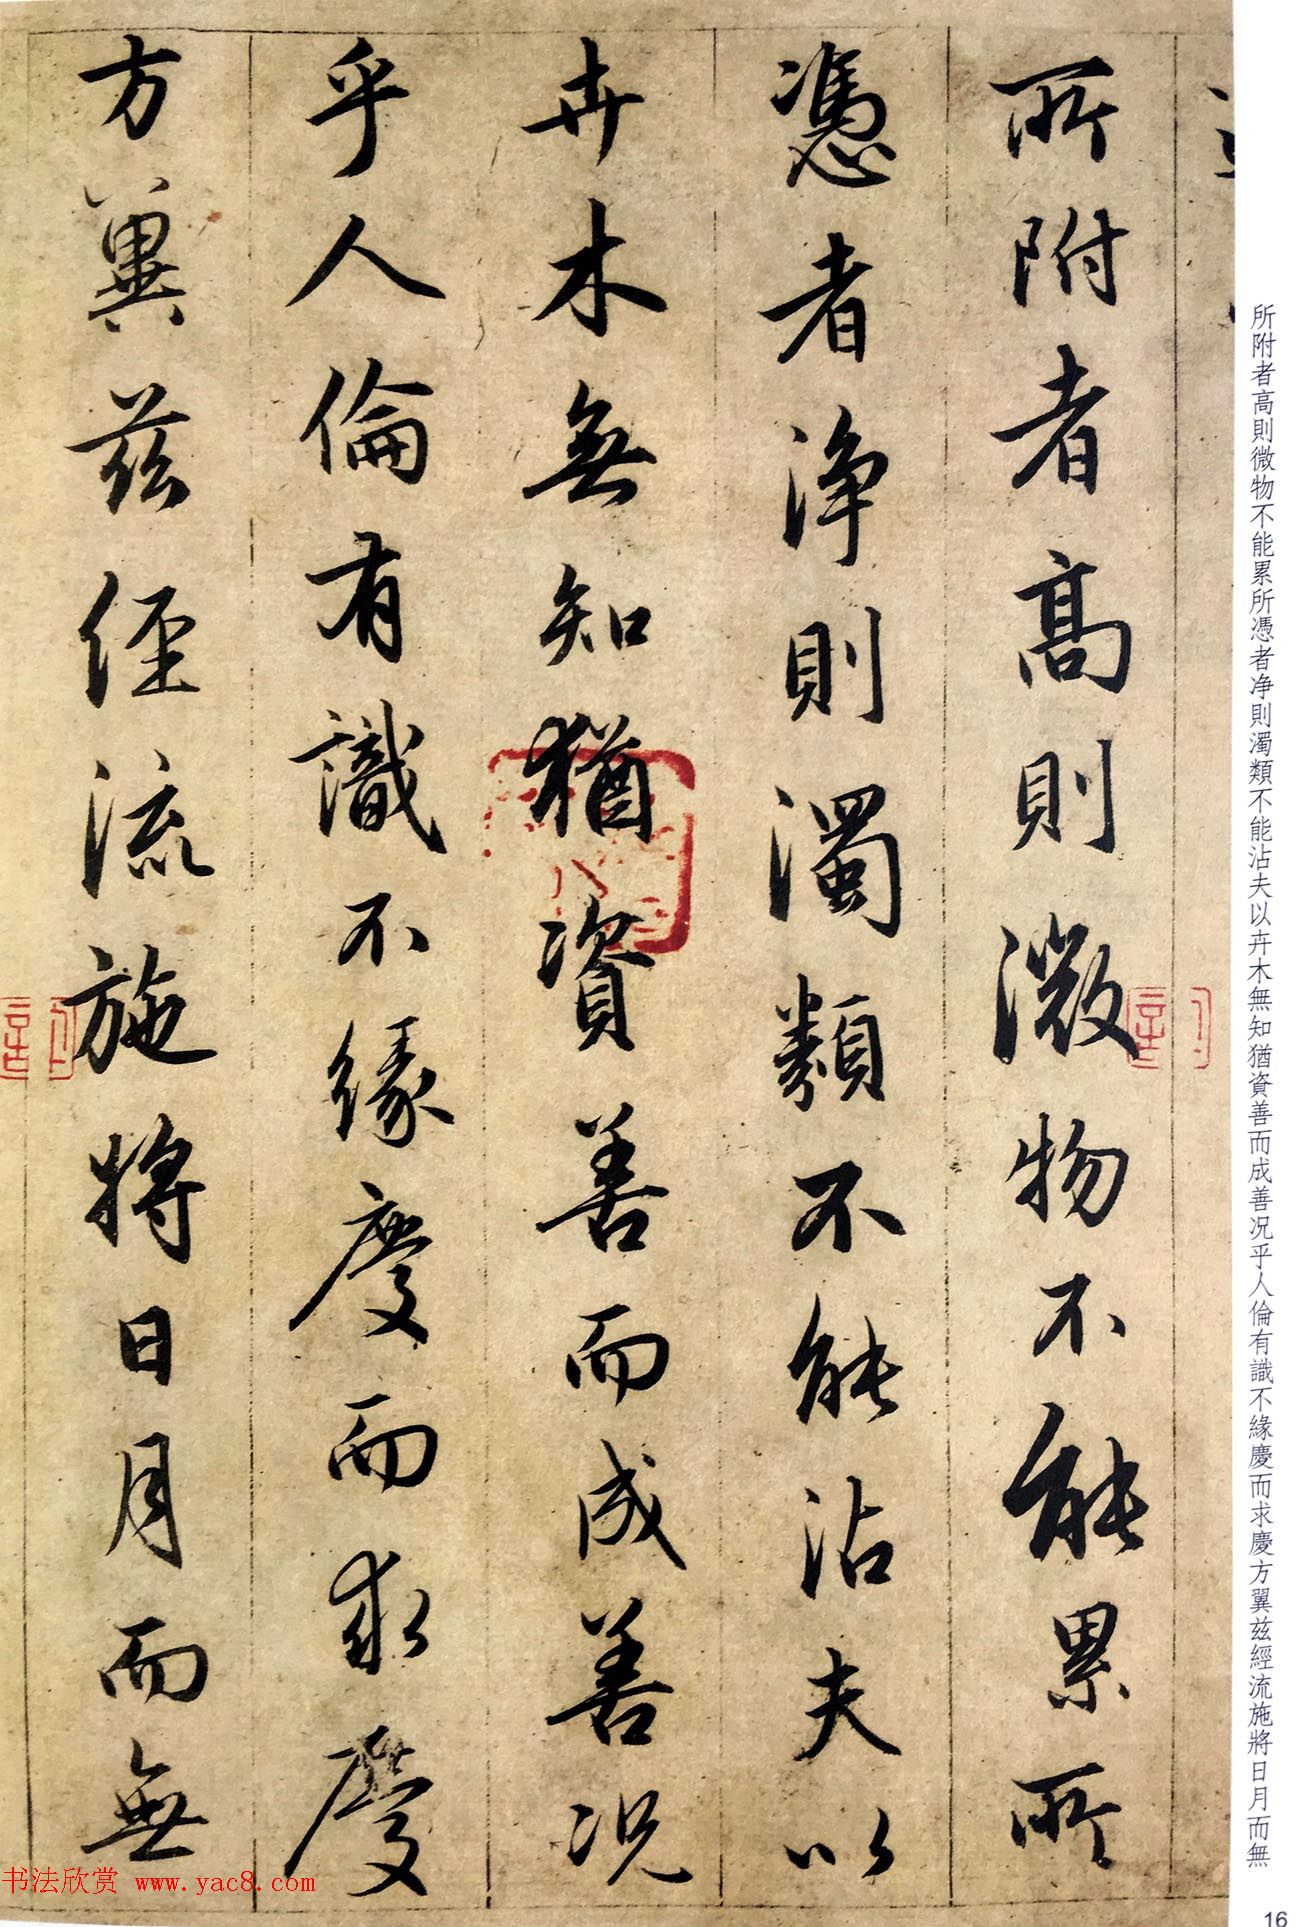 所附者高則微物不能累所
憑者淨則濁類不能沾夫以
卉木無知猶資善而成善况
乎人倫有識不緣慶而求慶
方翼茲經流施將日月而無
所附者高則微物不能累所憑者净則濁類不能沾夫以卉木無知猶資善而成善况乎人倫有識不緣慶而求慶方翼兹經流施將日月而無
16
书法欣赏 www.yac8.com